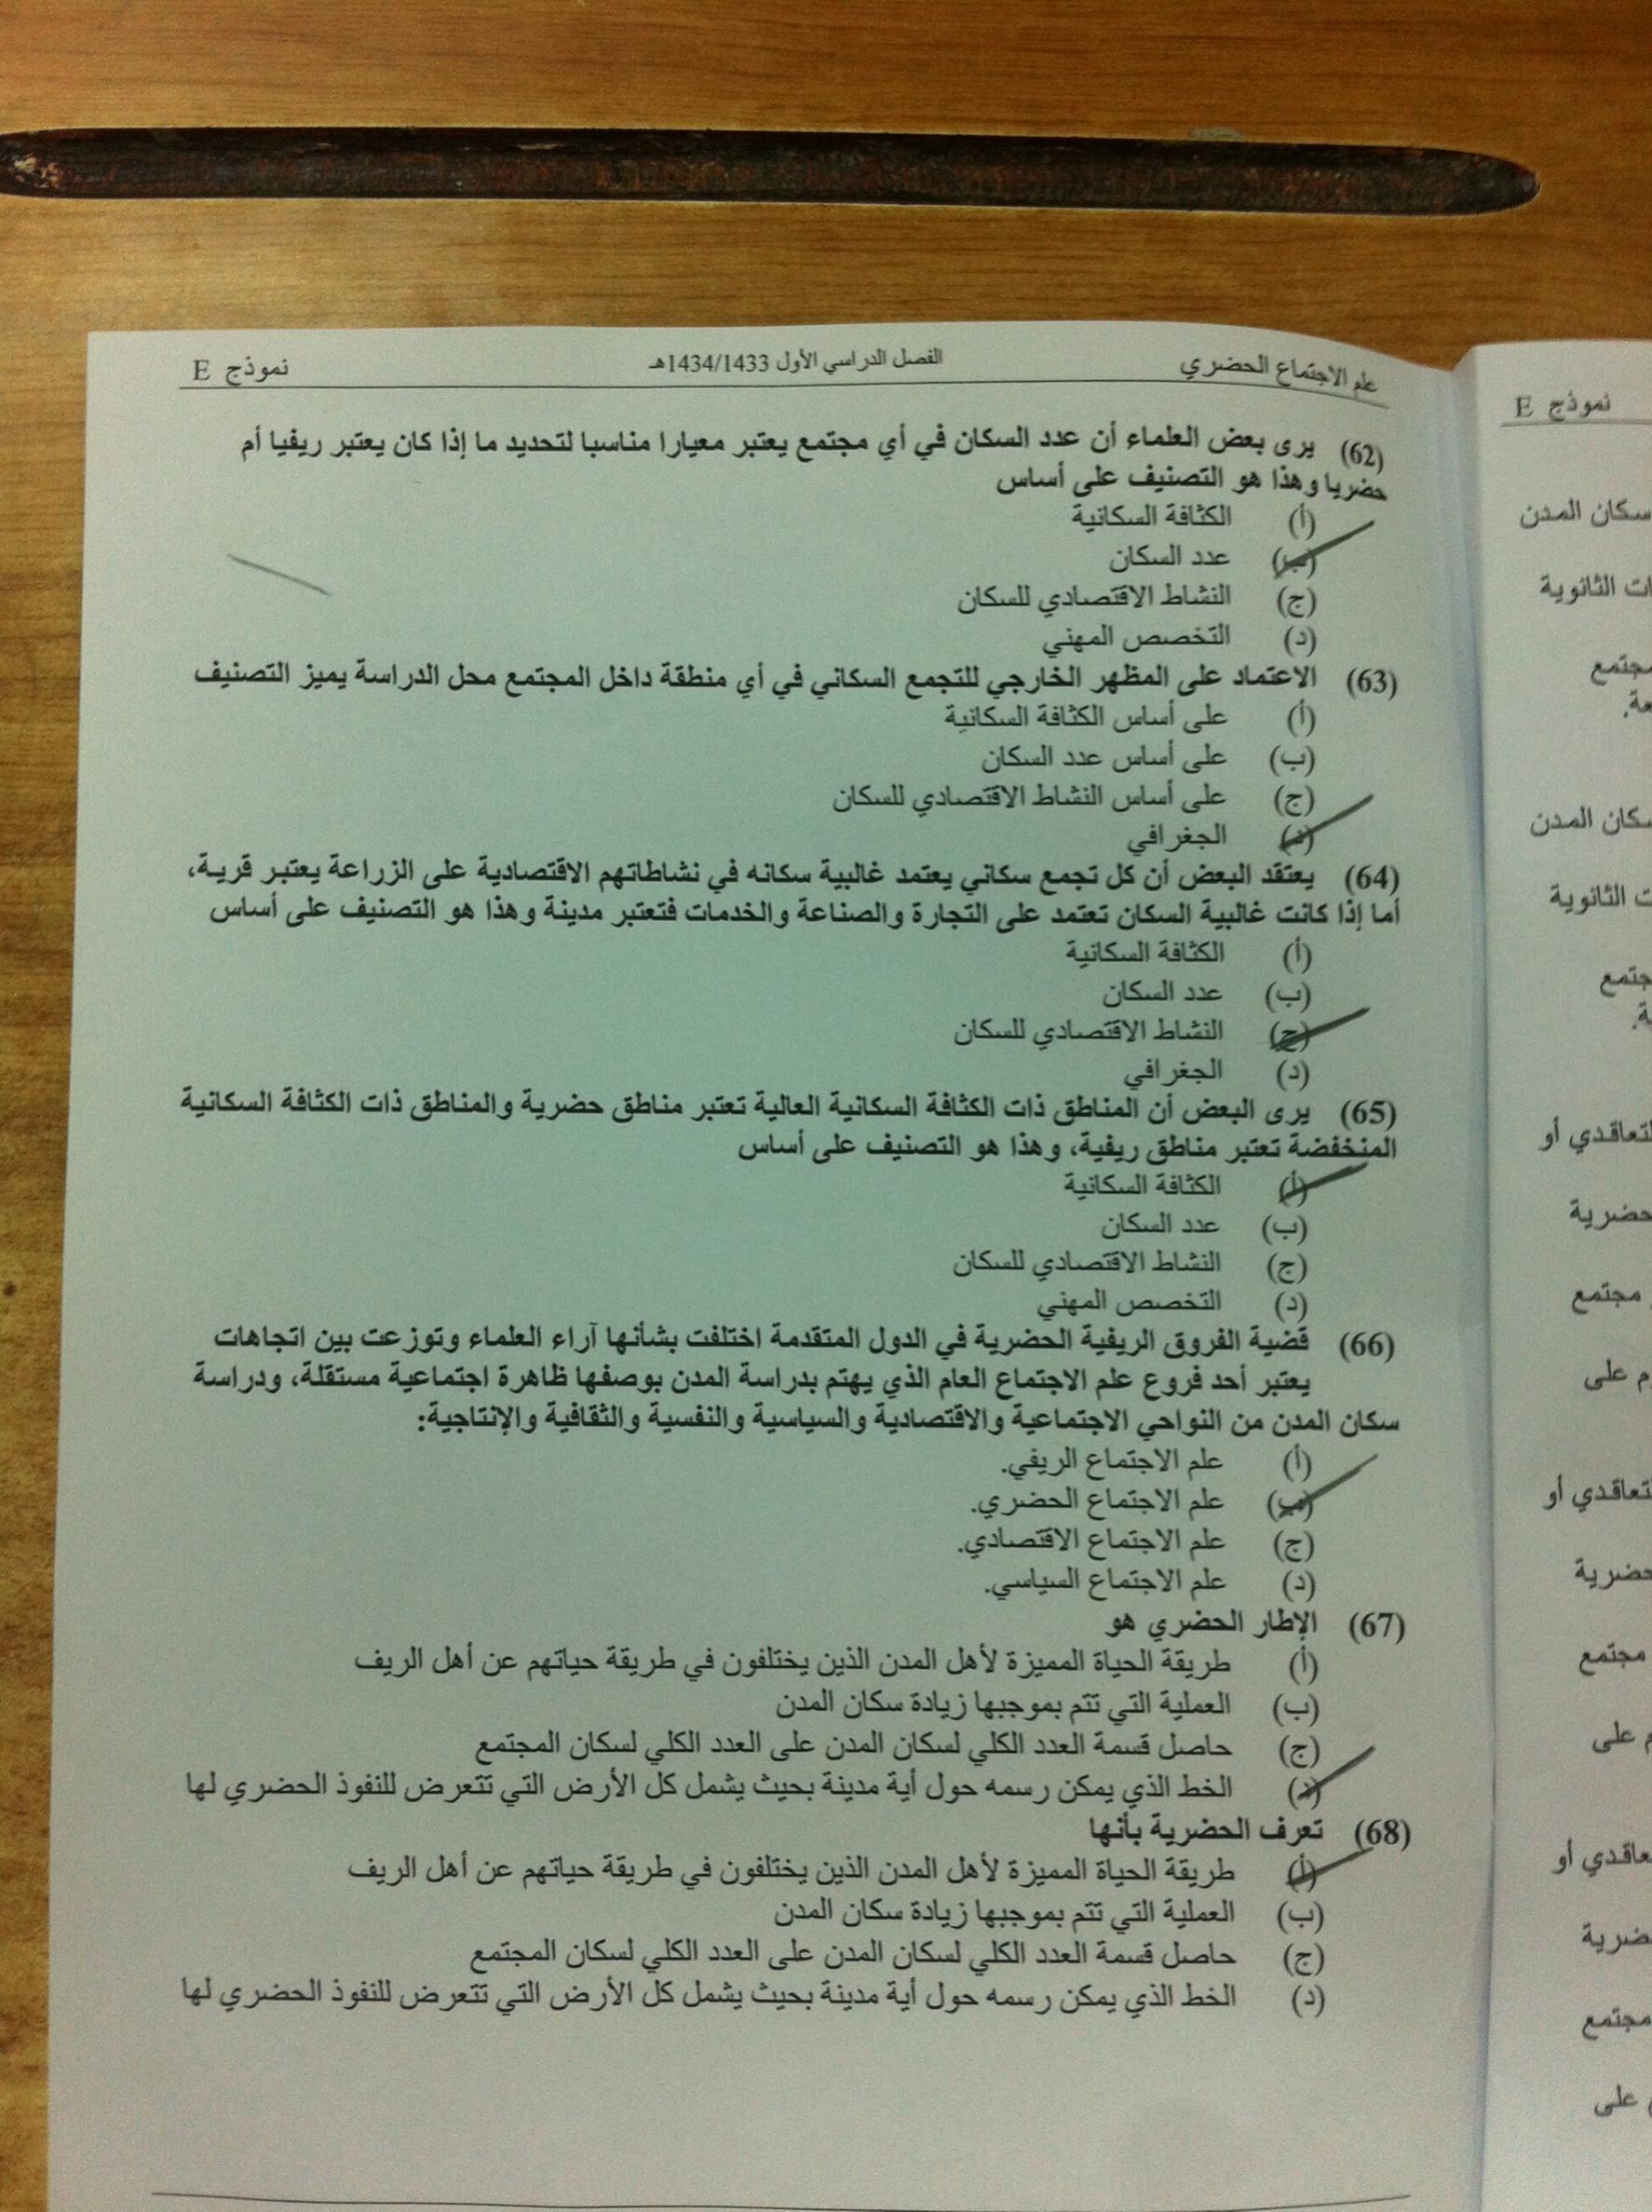 علم الاجتماع الحضري
الفصل الدراسي الأول 1434/1433هـ
نموذج E
(62) يرى بعض العلماء أن عدد السكان في أي مجتمع يعتبر معيارا مناسبا لتحديد ما إذا كان يعتبر ريفيا أم
حضريا وهذا هو التصنيف على أساس
(أ) الكثافة السكانية
(ب) عدد السكان
(ج) النشاط الاقتصادي للسكان
(د) التخصص المهني
(63) الاعتماد على المظهر الخارجي للتجمع السكاني في أي منطقة داخل المجتمع محل الدراسة يميز التصنيف
(أ) على أساس الكثافة السكانية
(ب) على أساس عدد السكان
(ج) على أساس النشاط الاقتصادي للسكان
(د) الجغرافي
(64) يعتقد البعض أن كل تجمع سكاني يعتمد غالبية سكانه في نشاطاتهم الاقتصادية على الزراعة يعتبر قرية،
أما إذا كانت غالبية السكان تعتمد على التجارة والصناعة والخدمات فتعتبر مدينة وهذا هو التصنيف على أساس
(أ) الكثافة السكانية
(ب) عدد السكان
(ج) النشاط الاقتصادي للسكان
(د) الجغرافي
(65) يرى البعض أن المناطق ذات الكثافة السكانية العالية تعتبر مناطق حضرية والمناطق ذات الكثافة السكانية
المنخفضة تعتبر مناطق ريفية، وهذا هو التصنيف على أساس
(أ) الكثافة السكانية
(ب) عدد السكان
(ج) النشاط الاقتصادي للسكان
(د) التخصص المهني
(66) قضية الفروق الريفية الحضرية في الدول المتقدمة اختلفت بشأنها آراء العلماء وتوزعت بين اتجاهات
يعتبر أحد فروع علم الاجتماع العام الذي يهتم بدراسة المدن بوصفها ظاهرة اجتماعية مستقلة، ودراسة
سكان المدن من النواحي الاجتماعية والاقتصادية والسياسية والنفسية والثقافية والإنتاجية:
(أ) علم الاجتماع الريفي.
(ب) علم الاجتماع الحضري.
(ج) علم الاجتماع الاقتصادي.
(د) علم الاجتماع السياسي.
(67) الإطار الحضري هو
(أ) طريقة الحياة المميزة لأهل المدن الذين يختلفون في طريقة حياتهم عن أهل الريف
(ب) العملية التي تتم بموجبها زيادة سكان المدن
(ج) حاصل قسمة العدد الكلي لسكان المدن على العدد الكلي لسكان المجتمع
(د) الخط الذي يمكن رسمه حول أية مدينة بحيث يشمل كل الأرض التي تتعرض للنفوذ الحضري لها
(68) تعرف الحضرية بأنها
(أ) طريقة الحياة المميزة لأهل المدن الذين يختلفون في طريقة حياتهم عن أهل الريف
(ب) العملية التي تتم بموجبها زيادة سكان المدن
(ج) حاصل قسمة العدد الكلي لسكان المدن على العدد الكلي لسكان المجتمع
(د) الخط الذي يمكن رسمه حول أية مدينة بحيث يشمل كل الأرض التي تتعرض للنفوذ الحضري لها
نموذج E
سكان المدن
الثانوية
مجتمع
سكان المدن
الثانوية
التعاقدي أو
حضرية
مجتمع
على
التعاقدي أو
حضرية
مجتمع
على
مجتمع
على